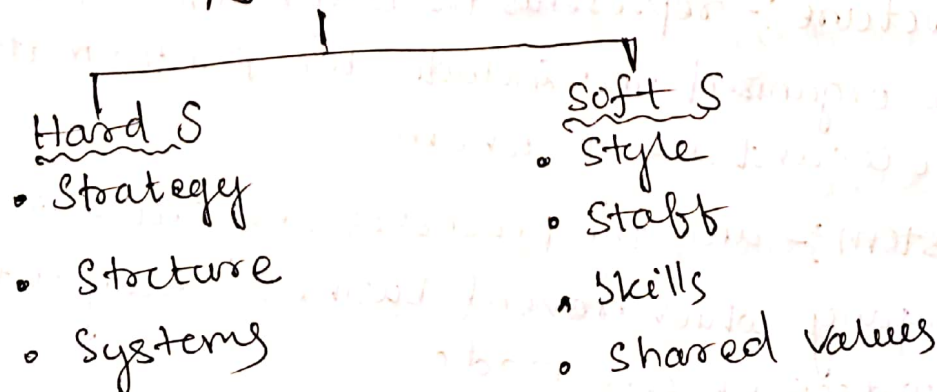 Hard S
• Strategy
• Structure
• Systems
Soft S
• Style
• Staff
• Skills
• Shared values